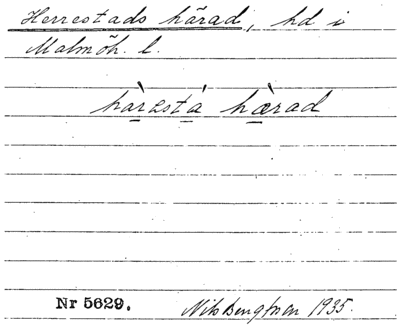 Herrestads härad, hd i
Malmöh. l.
hàrestá hærad
Nr 5629. Nils Bengtson 1935.